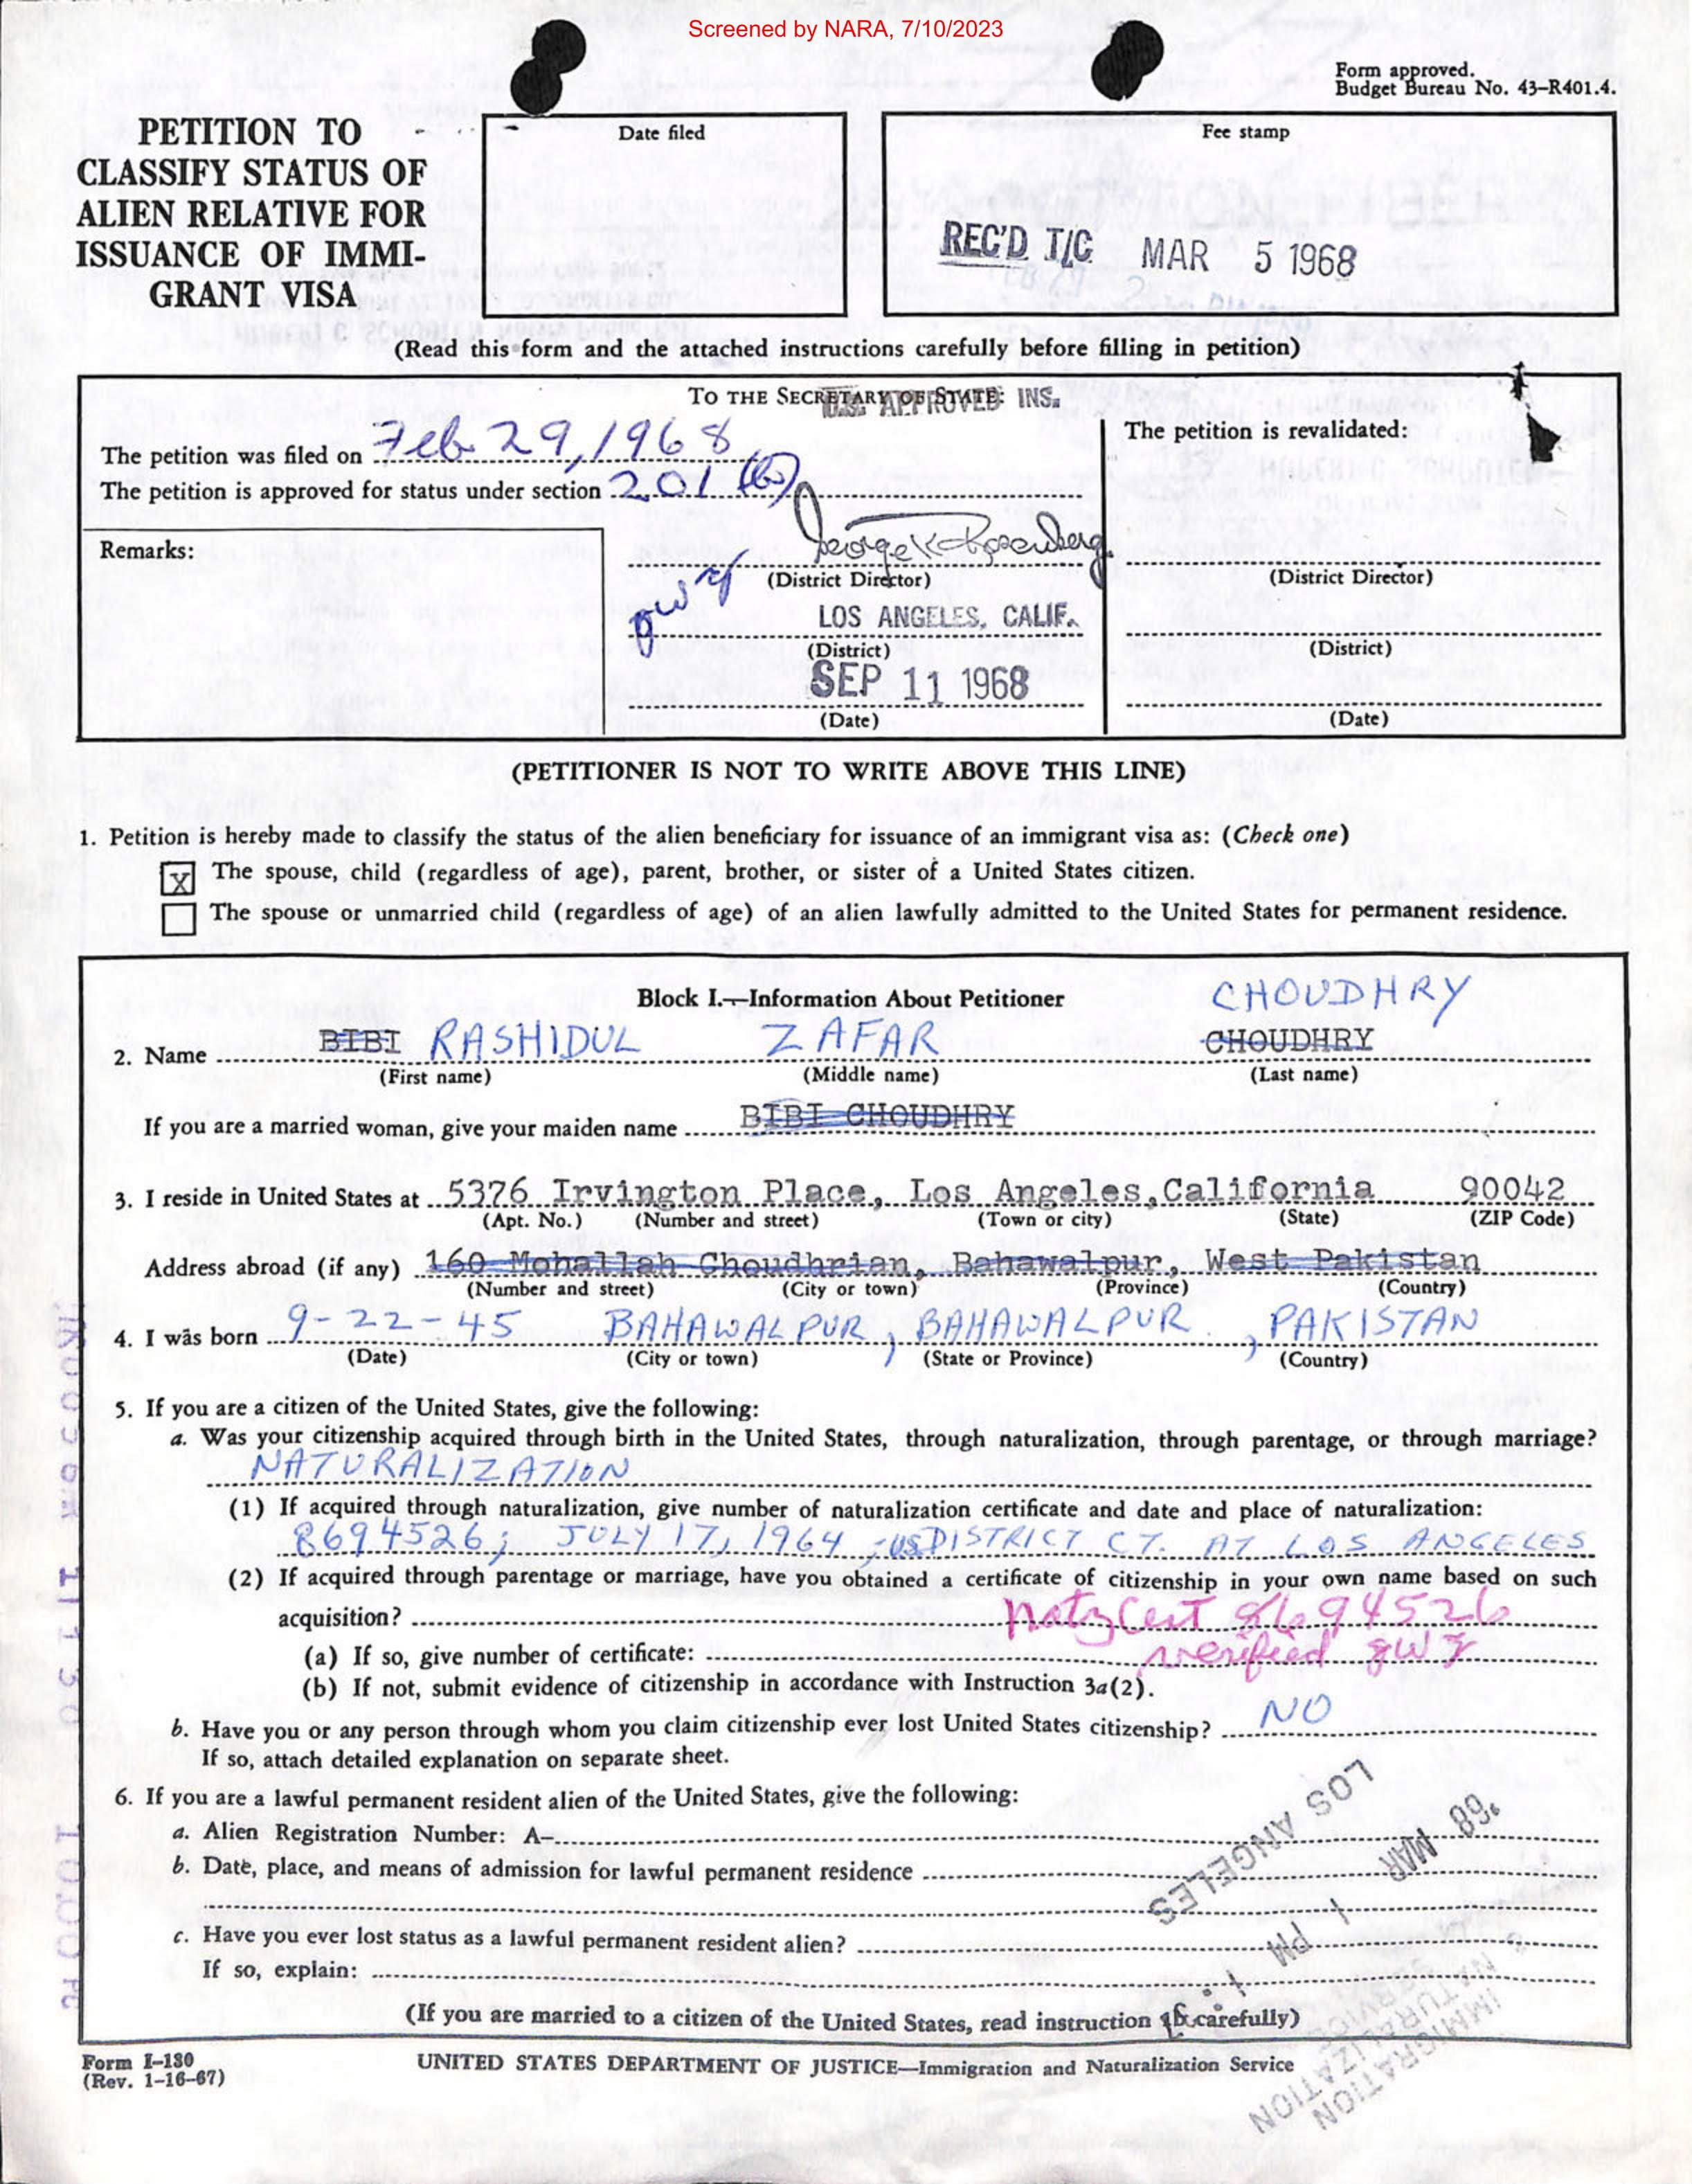 Screened by NARA, 7/10/2023
Form approved.
Budget Bureau No. 43–R401.4.
PETITION TO
CLASSIFY STATUS OF
ALIEN RELATIVE FOR
ISSUANCE OF IMMI-
GRANT VISA
Date filed
Fee stamp
REC'D T/C MAR 5 1968
(Read this form and the attached instructions carefully before filling in petition)
TO THE SECRETARY OF STATE:
U.S. APPROVED INS.
The petition was filed on Feb 29, 1968
The petition is approved for status under section 201 (b)
The petition is revalidated:
Remarks:
George K Rosenberg
(District Director)
(District Director)
LOS ANGELES, CALIF.
(District)
(District)
SEP 11 1968
(Date)
(Date)
(PETITIONER IS NOT TO WRITE ABOVE THIS LINE)
1. Petition is hereby made to classify the status of the alien beneficiary for issuance of an immigrant visa as: (Check one)
X The spouse, child (regardless of age), parent, brother, or sister of a United States citizen.
The spouse or unmarried child (regardless of age) of an alien lawfully admitted to the United States for permanent residence.
Block I.—Information About Petitioner
CHOUDHRY
2. Name BIBI RASHIDUL ZAFAR CHOUDHRY
(First name) (Middle name) (Last name)
If you are a married woman, give your maiden name BIBI CHOUDHRY
3. I reside in United States at 5376 Irvington Place, Los Angeles, California 90042
(Apt. No.) (Number and street) (Town or city) (State) (ZIP Code)
Address abroad (if any) 160 Mohallah Choudhrian, Bahawalpur, West Pakistan
(Number and street) (City or town) (Province) (Country)
4. I was born 9-22-45 BAHAWALPUR, BAHAWALPUR, PAKISTAN
(Date) (City or town) (State or Province) (Country)
5. If you are a citizen of the United States, give the following:
a. Was your citizenship acquired through birth in the United States, through naturalization, through parentage, or through marriage?
NATURALIZATION
(1) If acquired through naturalization, give number of naturalization certificate and date and place of naturalization:
8694526; JULY 17, 1964, US DISTRICT CT. AT LOS ANGELES
(2) If acquired through parentage or marriage, have you obtained a certificate of citizenship in your own name based on such
acquisition? Natz Cert 8694526
(a) If so, give number of certificate: verified
(b) If not, submit evidence of citizenship in accordance with Instruction 3a(2).
b. Have you or any person through whom you claim citizenship ever lost United States citizenship? NO
If so, attach detailed explanation on separate sheet.
6. If you are a lawful permanent resident alien of the United States, give the following:
a. Alien Registration Number: A–
b. Date, place, and means of admission for lawful permanent residence
c. Have you ever lost status as a lawful permanent resident alien?
If so, explain:
LOS ANGELES
'68 MAR 1 PM 1:
IMMIGRATION
NATURALIZATION
SERVICE
(If you are married to a citizen of the United States, read instruction carefully)
Form I–130
(Rev. 1–16–67)
UNITED STATES DEPARTMENT OF JUSTICE—Immigration and Naturalization Service